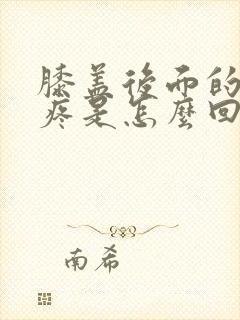 膝盖後而的
疼是怎麼回
南希